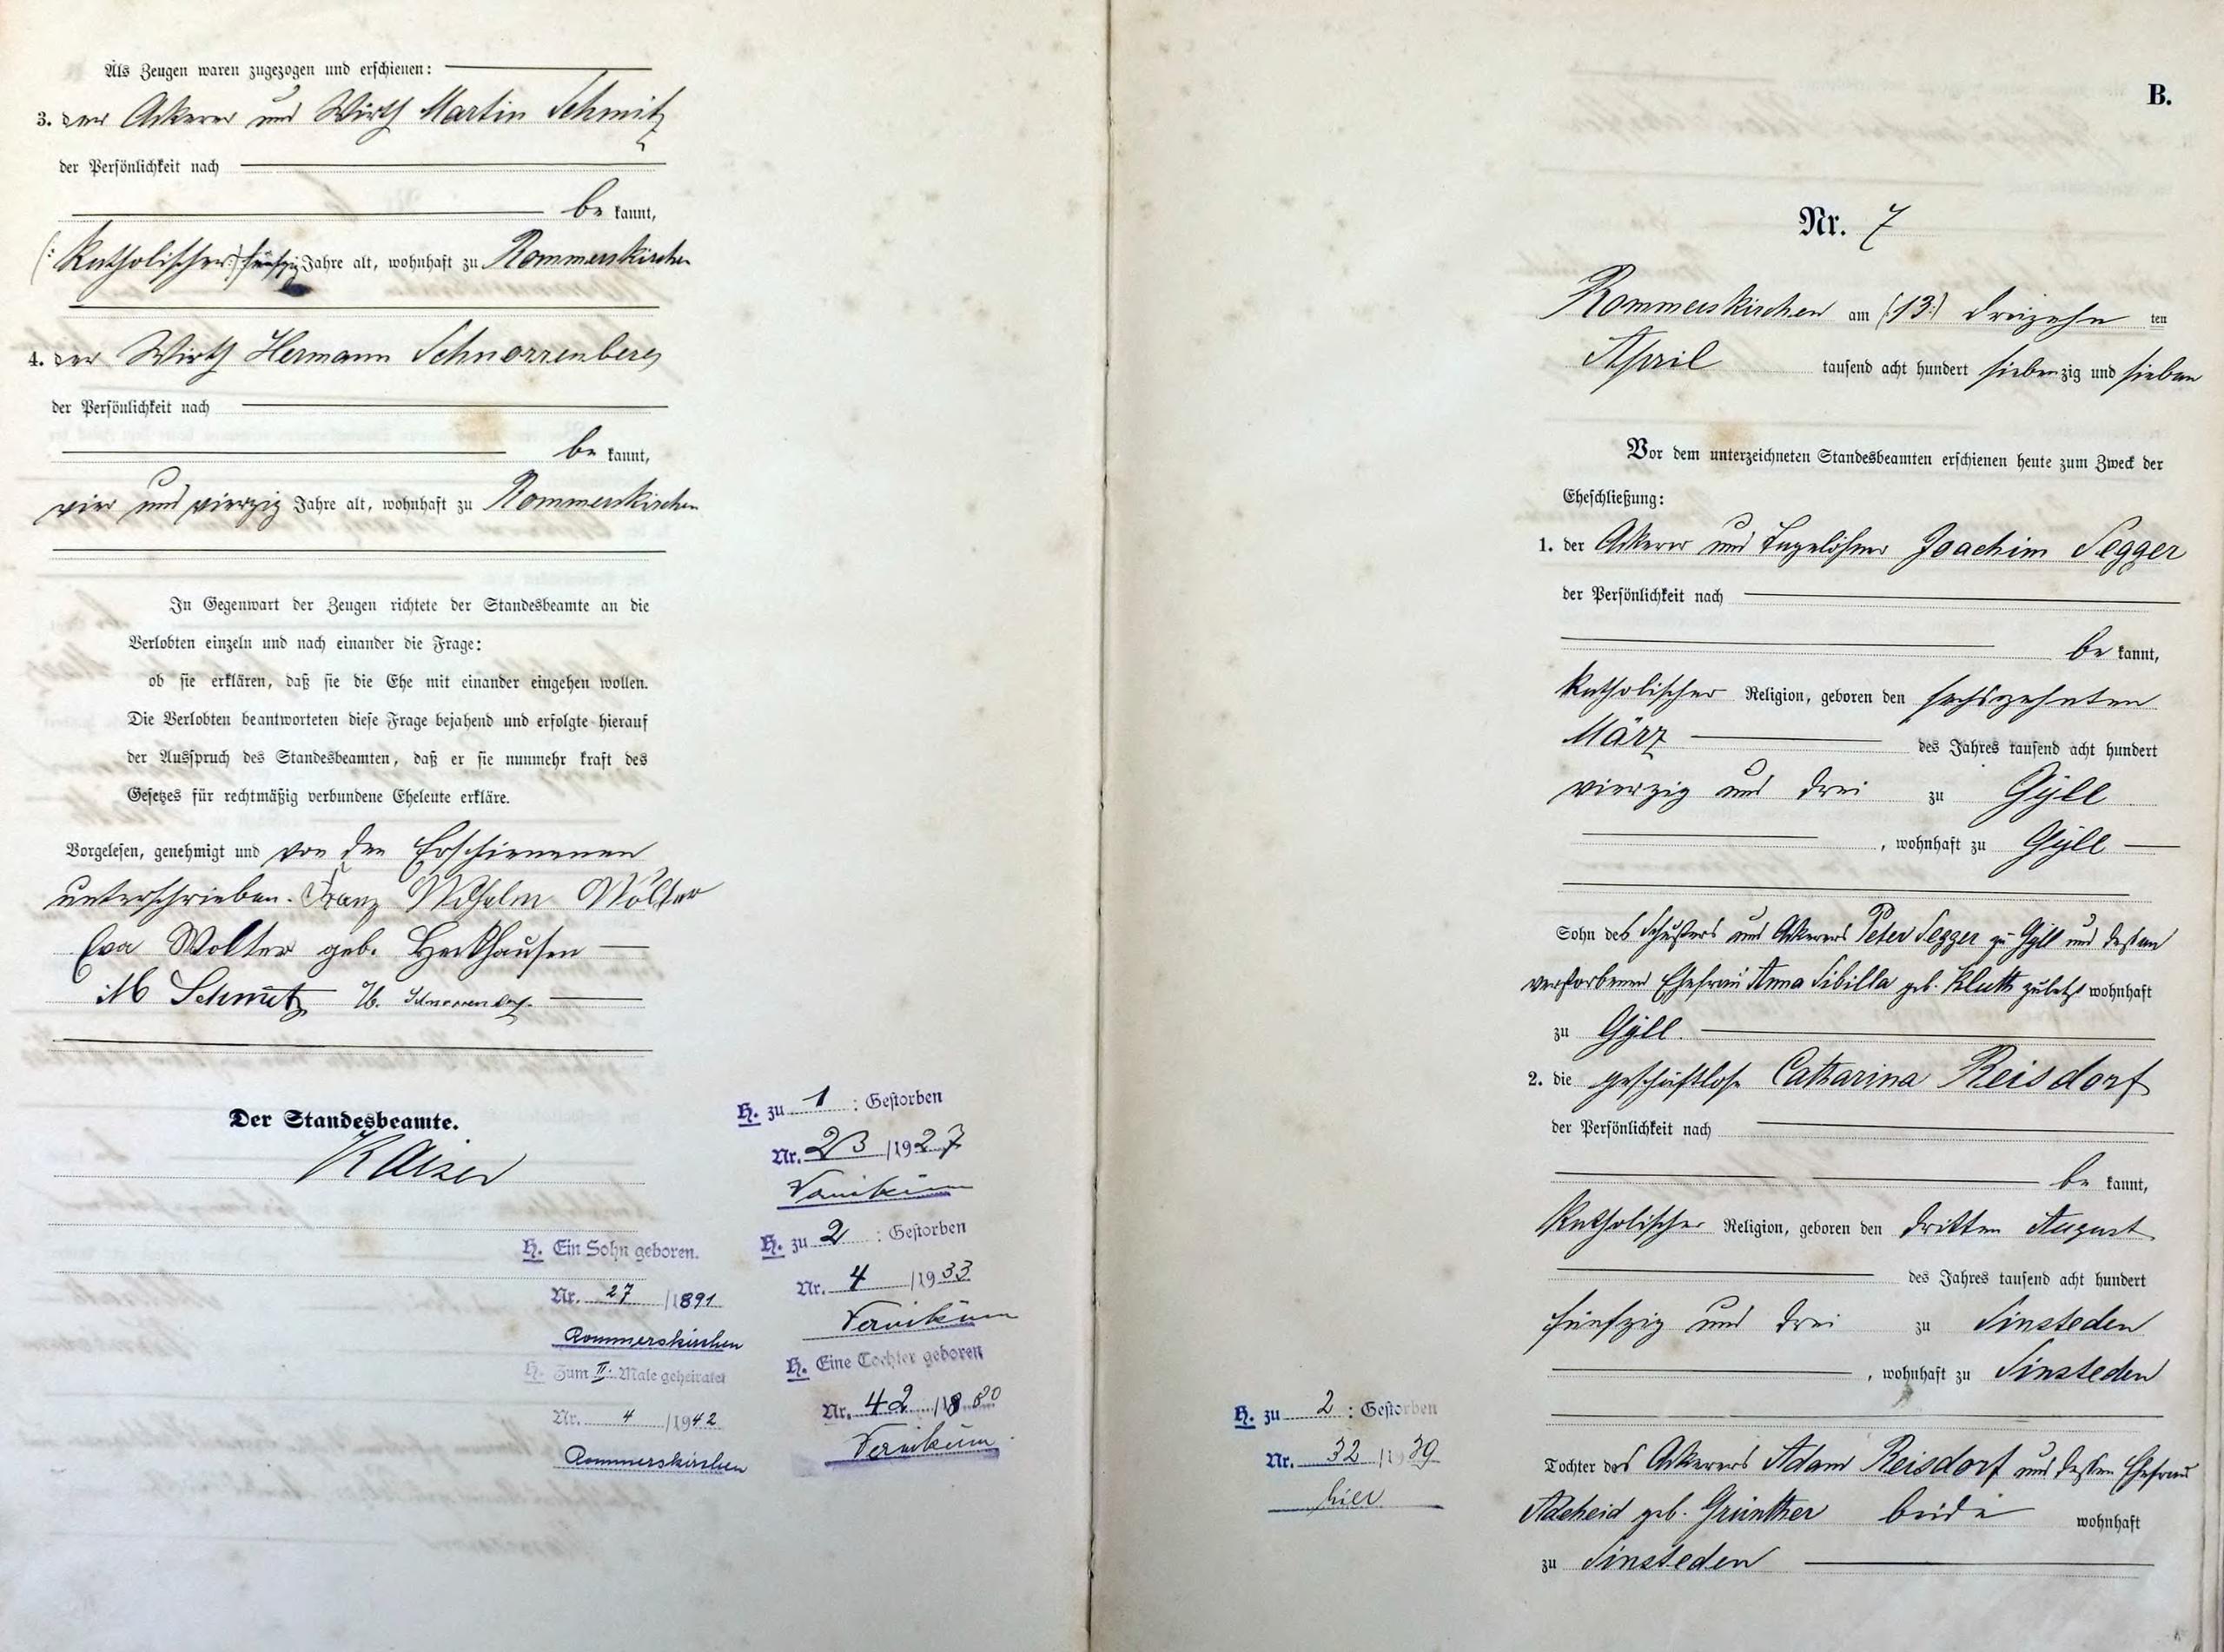 Als Zeugen waren zugezogen und erschienen:
3. der Ackerer und Wirth Martin Schmitz
der Persönlichkeit nach
be kannt,
(: katholischer :) fünfzig Jahre alt, wohnhaft zu Rommerskirchen
4. der Wirth Hermann Schnorrenberg
der Persönlichkeit nach
be kannt,
vier und vierzig Jahre alt, wohnhaft zu Rommerskirchen
In Gegenwart der Zeugen richtete der Standesbeamte an die
Verlobten einzeln und nach einander die Frage:
ob sie erklären, daß sie die Ehe mit einander eingehen wollen.
Die Verlobten beantworteten diese Frage bejahend und erfolgte hierauf
der Ausspruch des Standesbeamten, daß er sie nunmehr kraft des
Gesetzes für rechtmäßig verbundene Eheleute erkläre.
Vorgelesen, genehmigt und von den Erschienenen
unterschrieben. Franz Wilhelm Wolter
Eva Wolter geb. Heckhausen
M Schmitz H. Schnorrenberg
Der Standesbeamte.
Kaiser
H. Ein Sohn geboren.
Nr. 27 /1891
Rommerskirchen
H. Zum II. Male geheiratet
Nr. 4 /1942
Rommerskirchen
H. zu 1 : Gestorben
Nr. 23 /1927
Vanikum
H. zu 2 : Gestorben
Nr. 4 /1933
Vanikum
H. Eine Tochter geboren
Nr. 42 /1880
Vanikum
B.
Nr. 7
Rommerskirchen am (:13:) dreizehn ten
April tausend acht hundert siebenzig und sieben
Vor dem unterzeichneten Standesbeamten erschienen heute zum Zweck der
Eheschließung:
1. der Ackerer und Tagelöhner Joachim Segger
der Persönlichkeit nach
be kannt,
katholischer Religion, geboren den sechszehnten
März des Jahres tausend acht hundert
vierzig und drei zu Gÿll
, wohnhaft zu Gÿll
Sohn des Schusters und Ackerers Peter Segger zu Gÿll und dessen
verstorbenen Ehefrau Anna Sibilla geb. Kluth zuletzt wohnhaft
zu Gÿll.
2. die geschäftlose Catharina Reisdorf
der Persönlichkeit nach
be kannt,
katholischer Religion, geboren den dritten August
des Jahres tausend acht hundert
fünfzig und drei zu Sinsteden
, wohnhaft zu Sinsteden
H. zu 2 : Gestorben
Nr. 32 /1939
hier
Tochter des Ackerers Adam Reisdorf und dessen Ehefrau
Adelheid geb. Grünther beide wohnhaft
zu Sinsteden